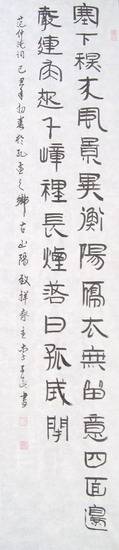 塞下秋来風景異衡陽雁去無留意四面邊
聲連角起千嶂裡長煙落日孤城閉
范仲淹詞己丑年初春於孔孟之鄉古山陽啟祥齋主李書